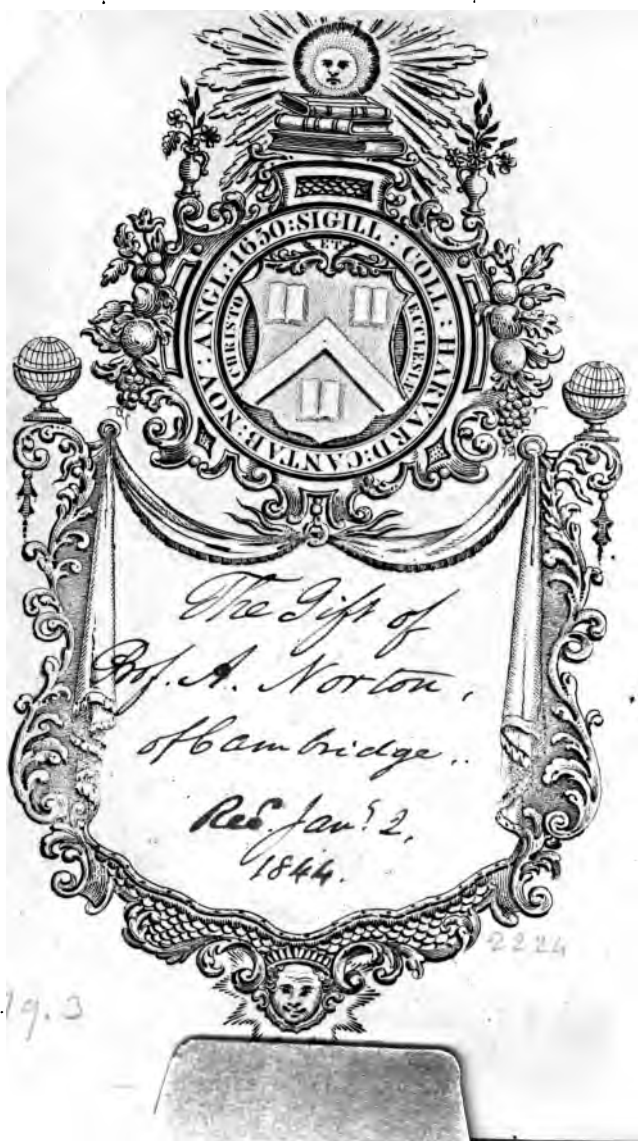 SIGILL : COLL : HARVARD : CANTAB : NOV : ANGL : 1650 :
ET
CHRISTO
ECCLESIÆ
The Gift of
Prof. A. Norton,
of Cambridge..
Recᵈ. Janʸ. 2,
1844.
2224
19.3